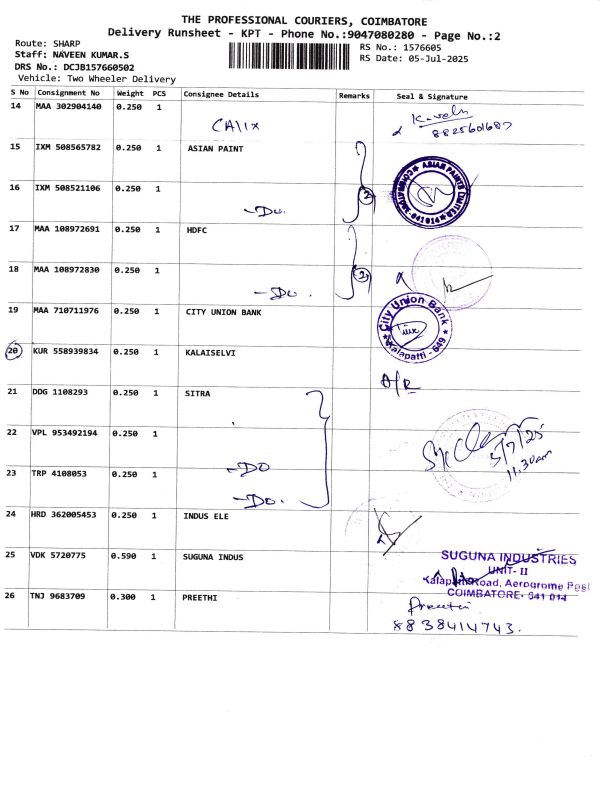 THE PROFESSIONAL COURIERS, COIMBATORE
Delivery Runsheet - KPT - Phone No.:9047080280 - Page No.:2
Route: SHARP
Staff: NAVEEN KUMAR.S
DRS No.: DCJB157660502
Vehicle: Two Wheeler Delivery
RS No.: 1576605
RS Date: 05-Jul-2025
S No Consignment No Weight PCS Consignee Details Remarks Seal & Signature
14 MAA 302904140 0.250 1
CAlix
8825601687
15 IXM 508565782 0.250 1 ASIAN PAINT
ASIAN PAINTS LIMITED
16 IXM 508521106 0.250 1
-Do. 2
17 MAA 108972691 0.250 1 HDFC
18 MAA 108972830 0.250 1
-Do. 2
19 MAA 710711976 0.250 1 CITY UNION BANK
City Union Bank
Kalapatti - 649
20 KUR 558939834 0.250 1 KALAISELVI
A/R
21 DDG 1108293 0.250 1 SITRA
22 VPL 953492194 0.250 1
-DO
5/7/25
11.30am
23 TRP 4108053 0.250 1
-Do.
24 HRD 362005453 0.250 1 INDUS ELE
25 VDK 5720775 0.590 1 SUGUNA INDUS
SUGUNA INDUSTRIES
UNIT- II
Kalapatti Road, Aerogrome Post
COIMBATORE- 641 014
26 TNJ 9683709 0.300 1 PREETHI
Preethi
8838414743.